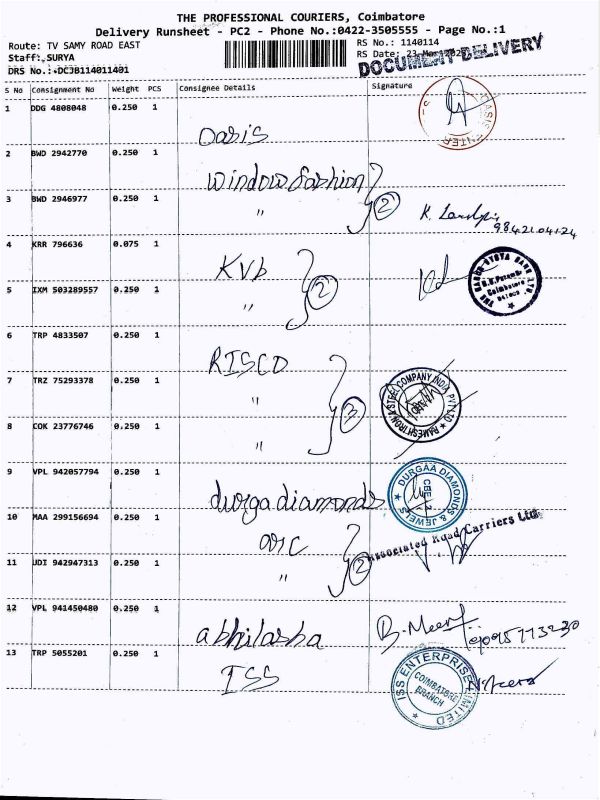 THE PROFESSIONAL COURIERS, Coimbatore
Delivery Runsheet - PC2 - Phone No.:0422-3505555 - Page No.:1
Route: TV SAMY ROAD EAST
RS No.: 1140114
Staff: SURYA
RS Date: 23 Mar
DOCUMENT DELIVERY
DRS No.: DCJB114011401
S No Consignment No Weight PCS Consignee Details Signature
1 DDG 4808048 0.250 1 Oasis
2 BWD 2942770 0.250 1 window fashion
3 BWD 2946977 0.250 1 " 2 K.
4 KRR 796636 0.075 1 KVb
5 IXM 503289557 0.250 1 " 2
6 TRP 4833507 0.250 1 RISCO
7 TRZ 75293378 0.250 1 " 3
8 COK 23776746 0.250 1 "
RAMESH IRON & STEEL COMPANY INDIA PVT LTD
9 VPL 942057794 0.250 1 durga diamonds
DURGAA DIAMONDS & JEWELS CBE - 2
10 MAA 299156694 0.250 1 arc
Associated Road Carriers Ltd.
11 UDI 942947313 0.250 1 " 2
12 VPL 941450480 0.250 1 abhilasha
13 TRP 5055201 0.250 1 ISS
ISS ENTERPRISE LIMITED COIMBATORE BRANCH